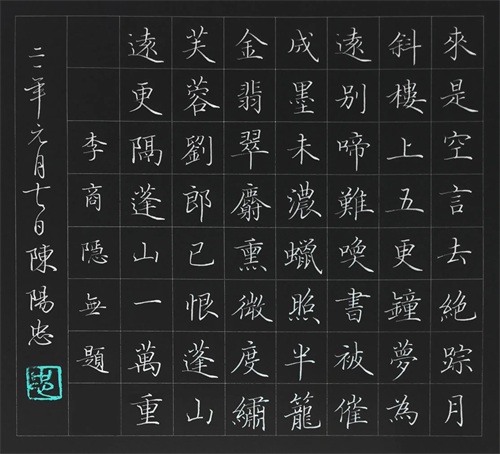 來是空言去絕踪月
斜樓上五更鐘夢為
遠別啼難喚書被催
成墨未濃蠟照半籠
金翡翠麝熏微度繡
芙蓉劉郎已恨蓬山
遠更隔蓬山一萬重
李商隱無題
二一年元月七日陳陽忠
忠